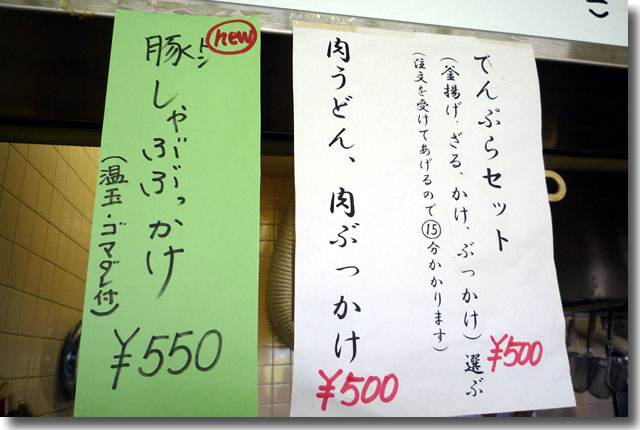 でんぷらセット
¥500
(釜揚げ、ざる、かけ、ぶっかけ)選ぶ
(注文を受けてあげるので⑮分かかります)
肉うどん、肉ぶっかけ
¥500
new
トン
豚しゃぶぶっかけ
(温玉・ゴマダレ付)
¥550